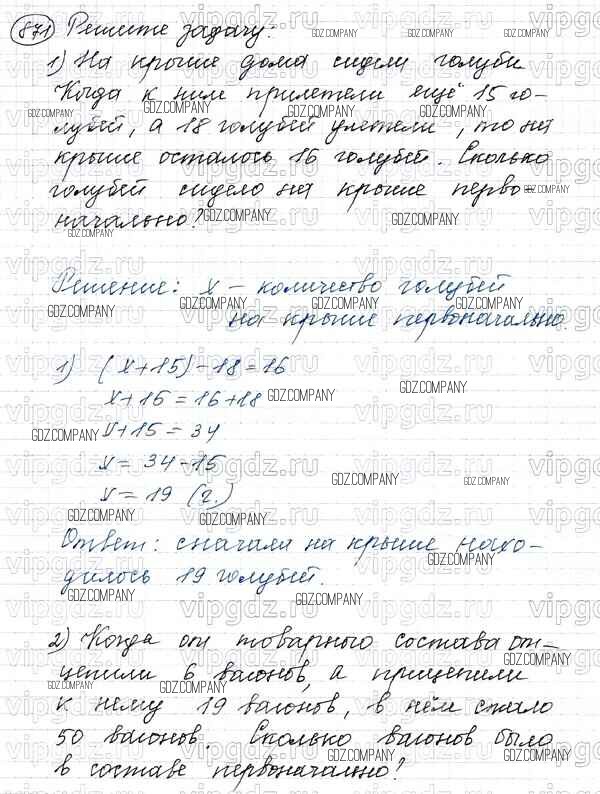 871 Решите задачу:
1) На крыше дома сидели голуби
Когда к ним прилетели ещё 15 го-
лубей, а 18 голубей улетели, то на
крыше осталось 16 голубей. Сколько
голубей сидело на крыше перво-
начально?
Решение: x – количество голубей
на крыше первоначально.
1) (x+15)-18=16
x+15=16+18
x+15=34
x=34-15
x=19 (г.)
Ответ: сначала на крыше нахо-
дилось 19 голубей.
2) Когда от товарного состава от-
цепили 6 вагонов, а прицепили
к нему 19 вагонов, в нём стало
50 вагонов. Сколько вагонов было
в составе первоначально?